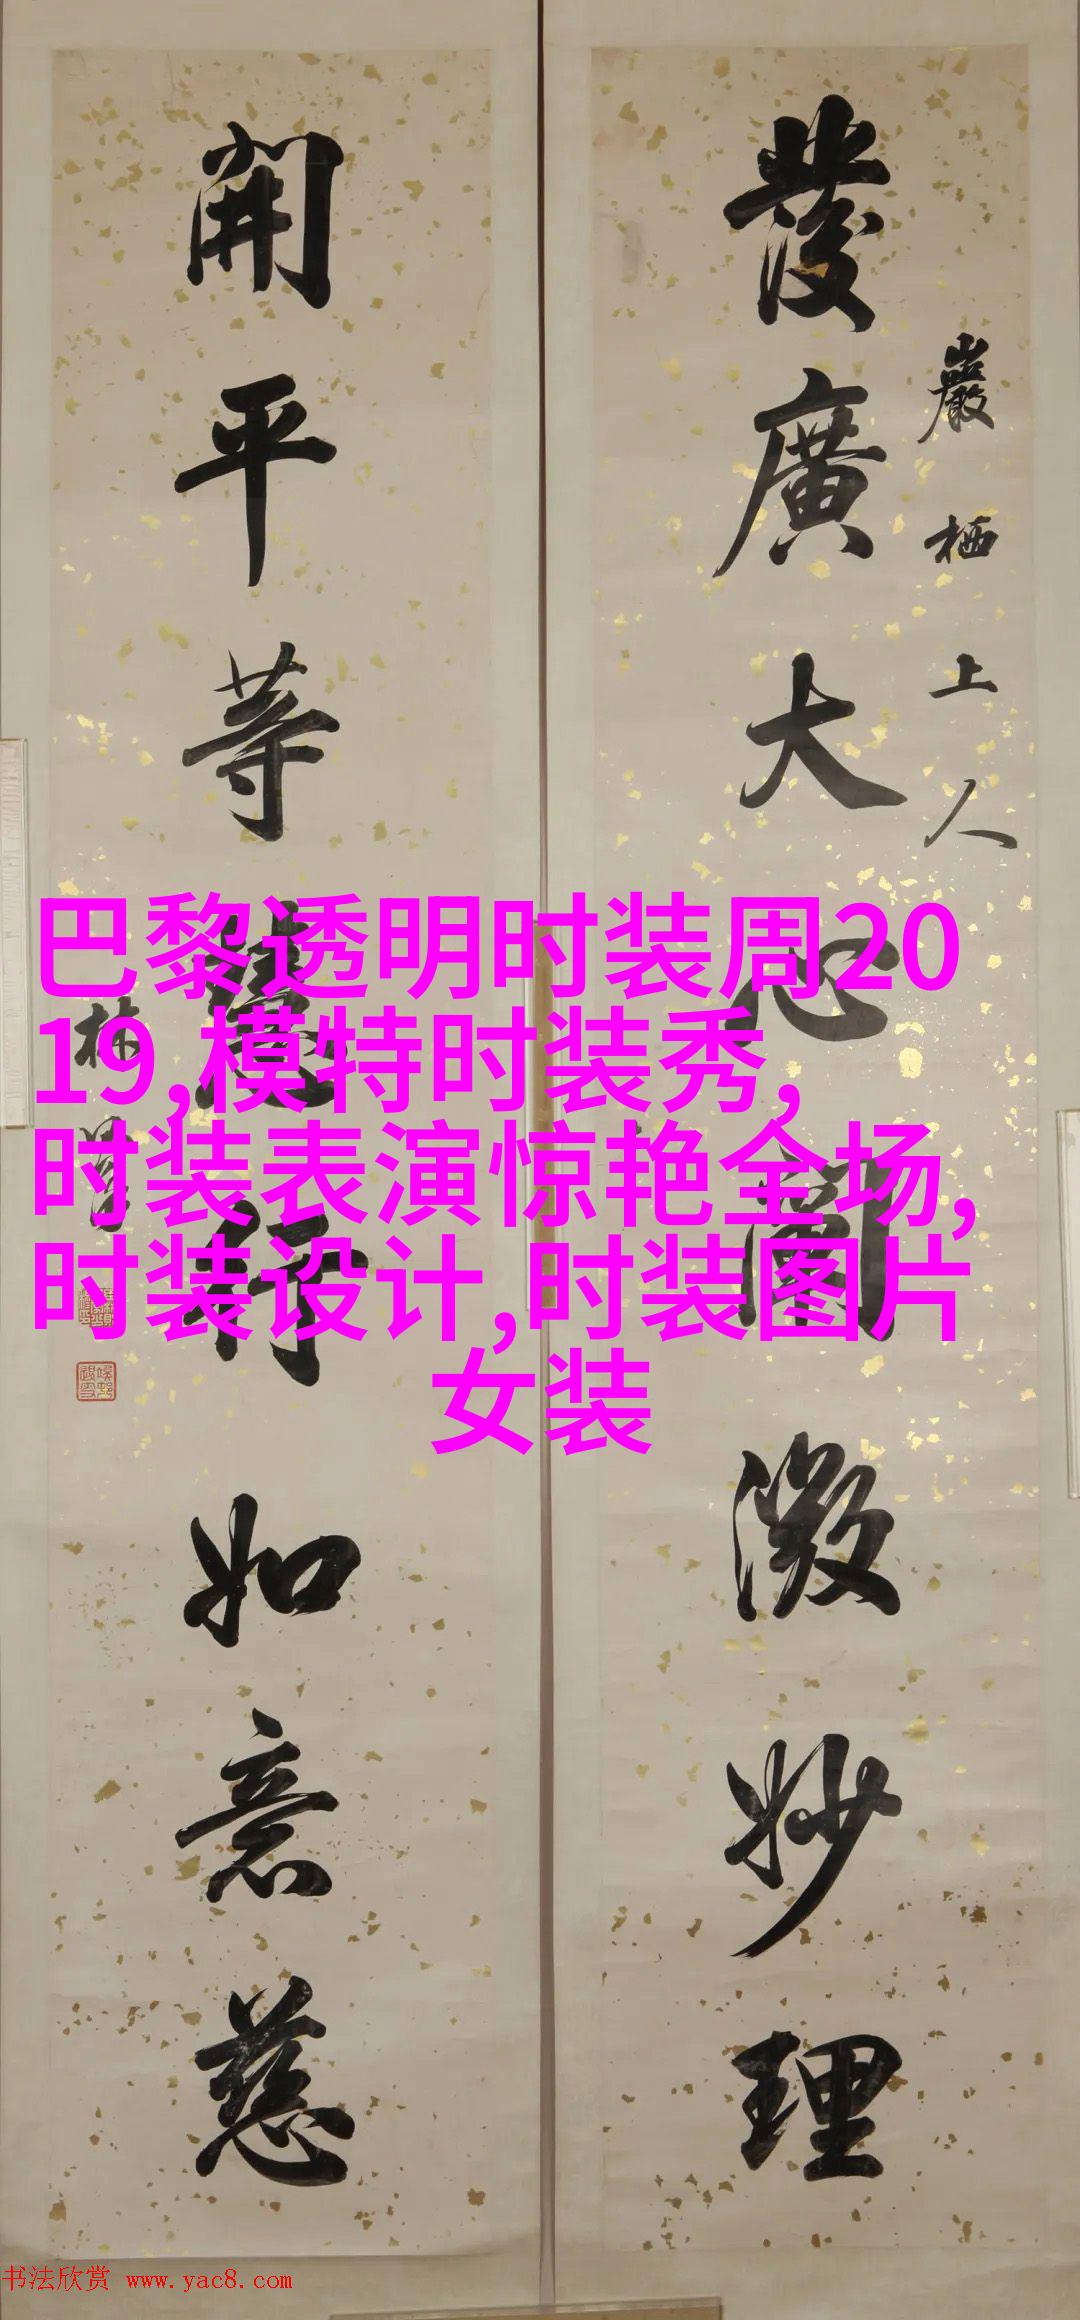 發廣大心闡微妙理
巖栖上人
開平等慧行如意慈
林
巴黎透明时装周20
19,模特时装秀,
时装表演惊艳全场,
时装设计,时装图片
女装
书法欣赏 www.yac8.com